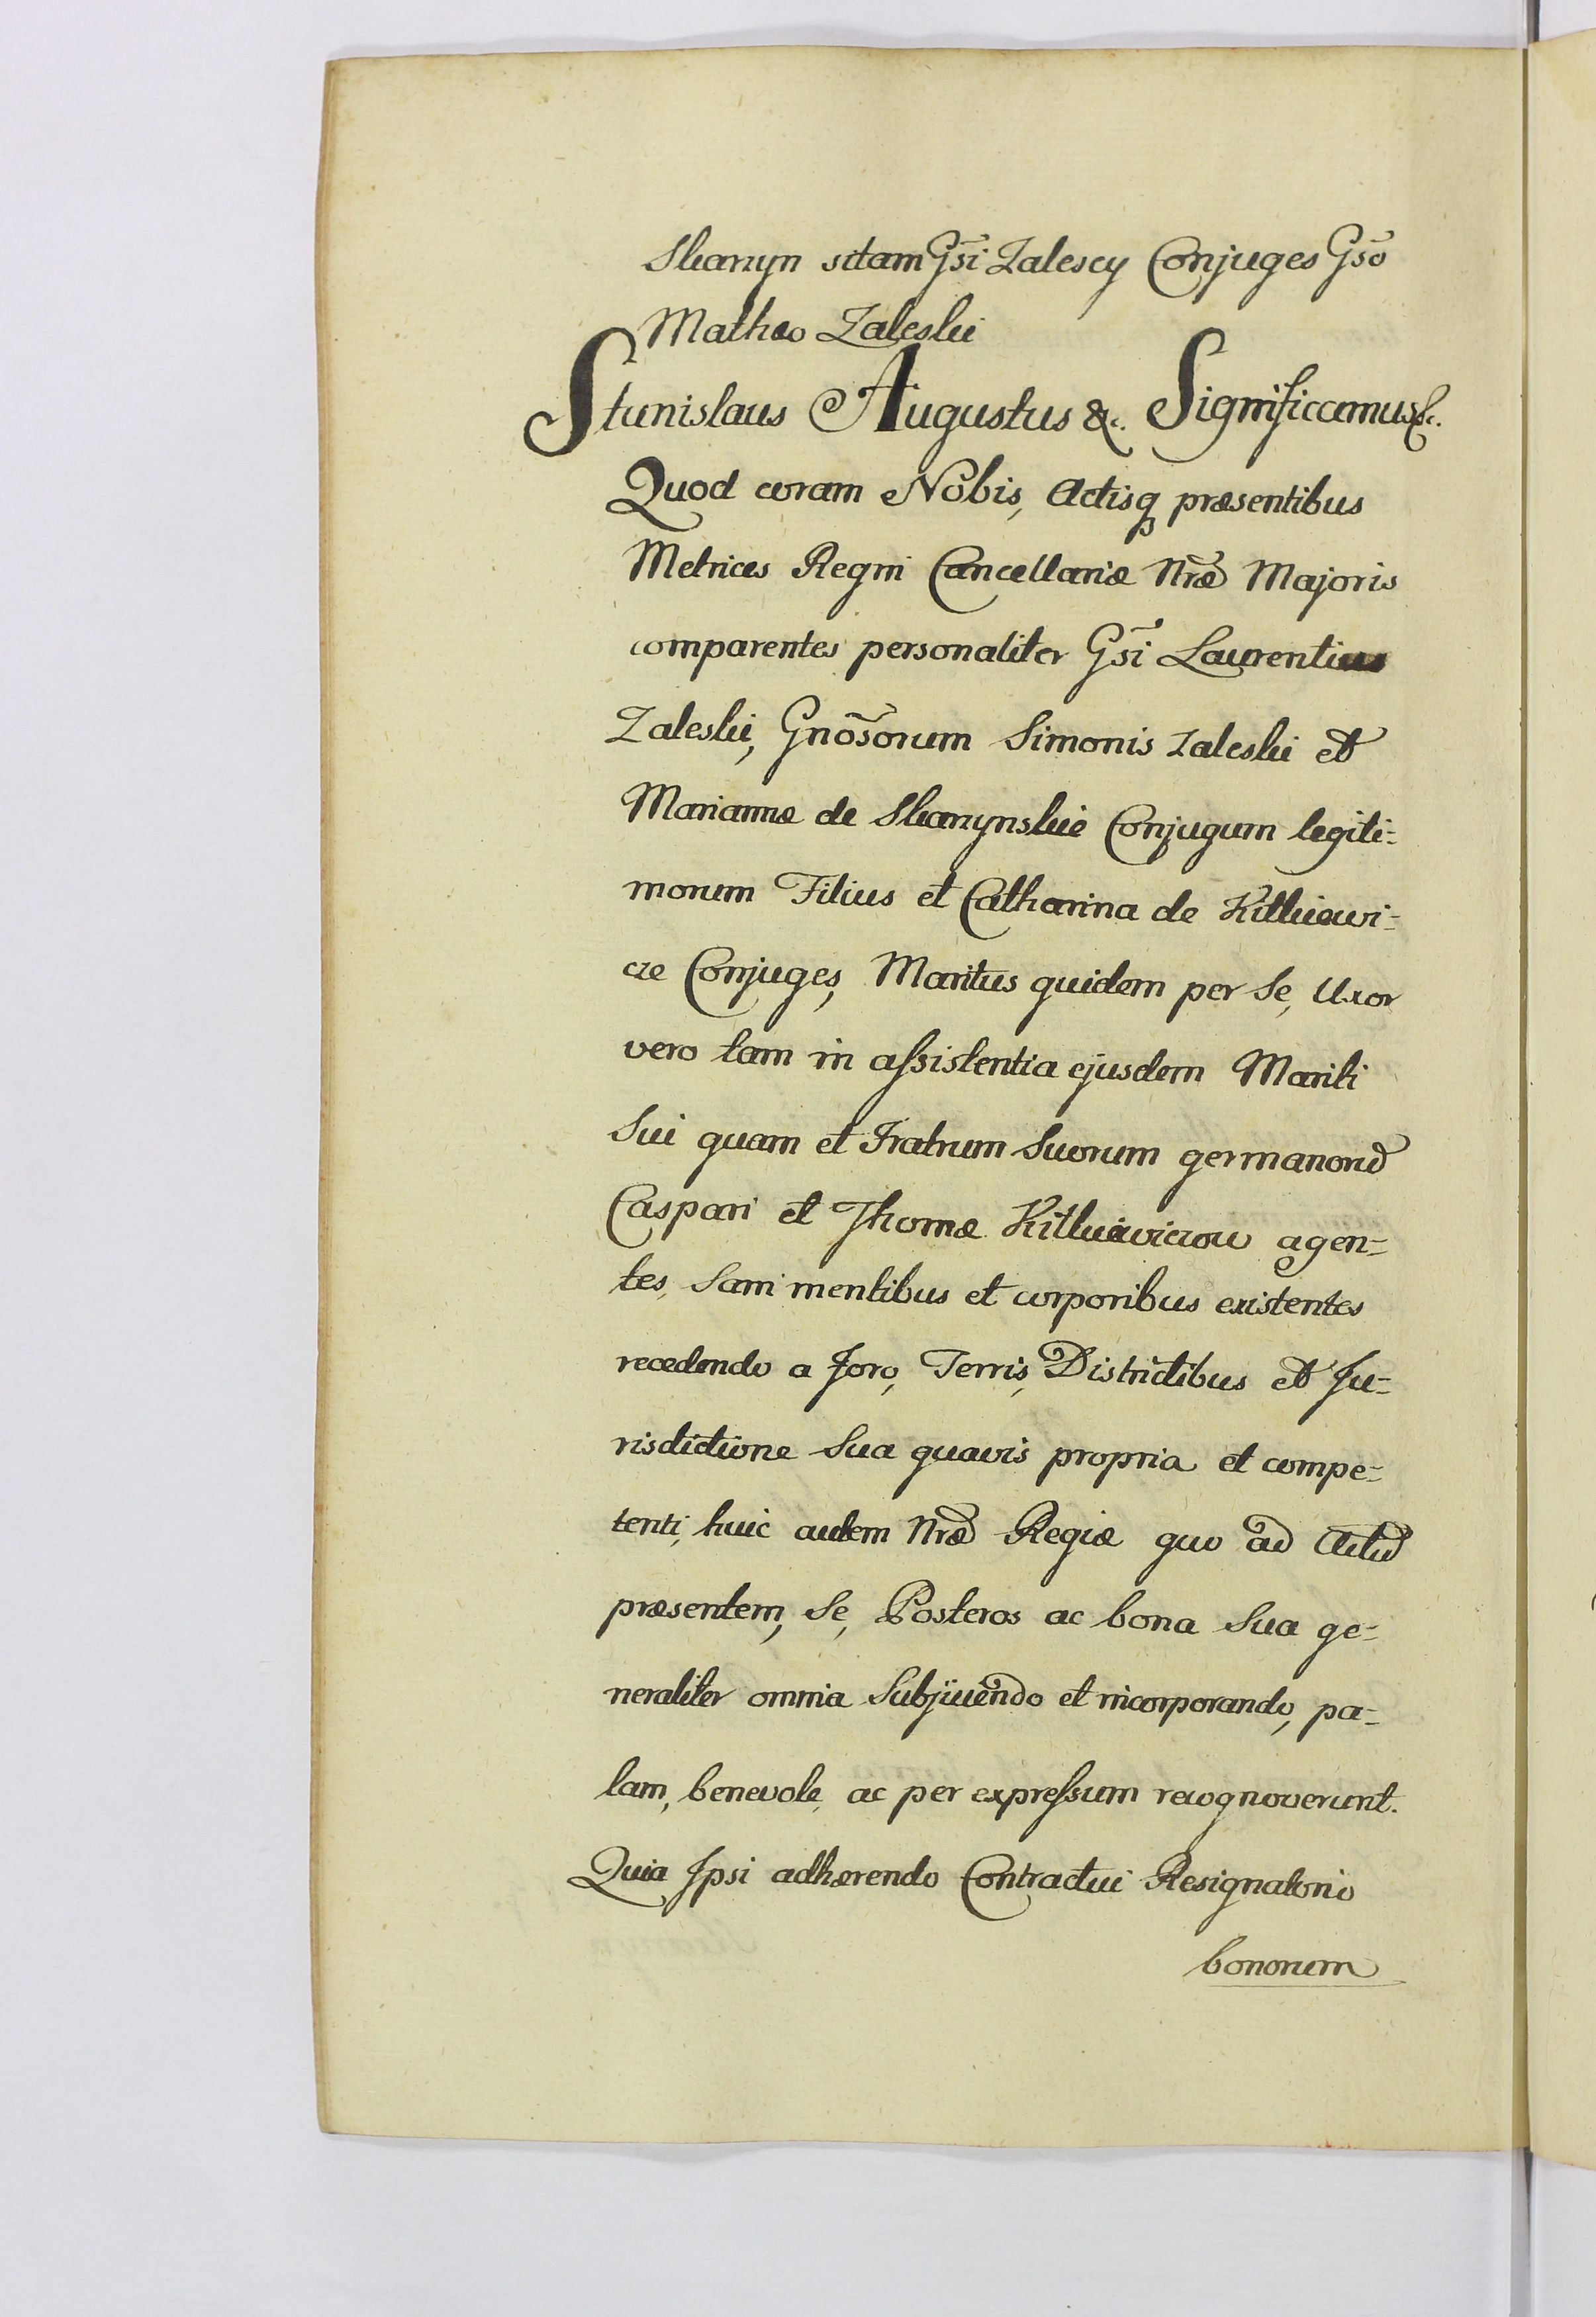 Skaryn sitam Gsi Zalescy Conjuges Gso
Mathæo Zaleski
Stanislaus Augustus &c. Significamus &c.
Quod coram Nobis, Actisq præsentibus
Metrices Regni Cancellariæ Nræ Majoris
comparentes personaliter Gsi Laurentius
Zaleski, Gnosorum Simonis Zaleski et
Mariannæ de Skarynskie Conjugum legiti-
morum Filius et Catharina de Kitkiewi-
cze Conjuges, Maritus quidem per se, Uxor
vero tam in assistentia ejusdem Mariti
Sui quam et Fratrum Suorum germanorũ
Caspari et Thomæ Kitkiewiczow agen-
tes, Sani mentibus et corporibus existentes
recedendo a Foro, Terris, Districtibus et Ju-
risdictione Sua quavis propria et compe-
tenti, huic autem Nræ Regiæ quo ad Actũ
præsentem, Se, Posteros ac bona Sua ge-
neraliter omnia Subjiciendo et incorporando, pa-
lam, benevole, ac per expressum recognoverunt.
Quia Ipsi adhærendo Contractui Resignatorio
bonorum